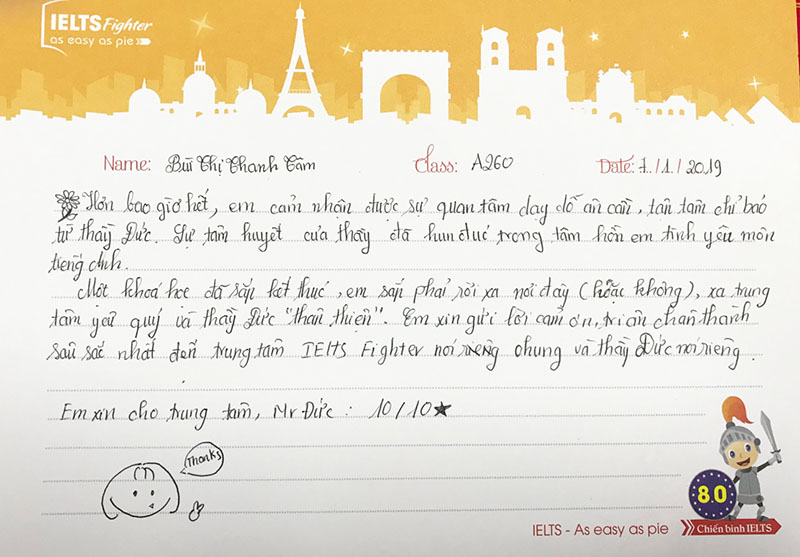 IELTS Fighter
as easy as pie
Name: Bùi Thị Thanh Tâm Class: A260 Date: 7/1/2019
Hơn bao giờ hết, em cảm nhận được sự quan tâm dạy dỗ ân cần, tận tâm chỉ bảo
từ thầy Đức. Sự tâm huyết của thầy đã hun đúc trong tâm hồn em tình yêu môn
tiếng Anh.
Một khoá học đã sắp kết thúc, em sắp phải rời xa nơi đây (hoặc không), xa trung
tâm yêu quý và thầy Đức "thân thiện". Em xin gửi lời cảm ơn, tri ân chân thành
sâu sắc nhất đến trung tâm IELTS Fighter nói chung và thầy Đức nói riêng.
Em xin cho trung tâm, Mr Đức: 10/10★
Thanks
8.0
IELTS - As easy as pie
Chiến binh IELTS